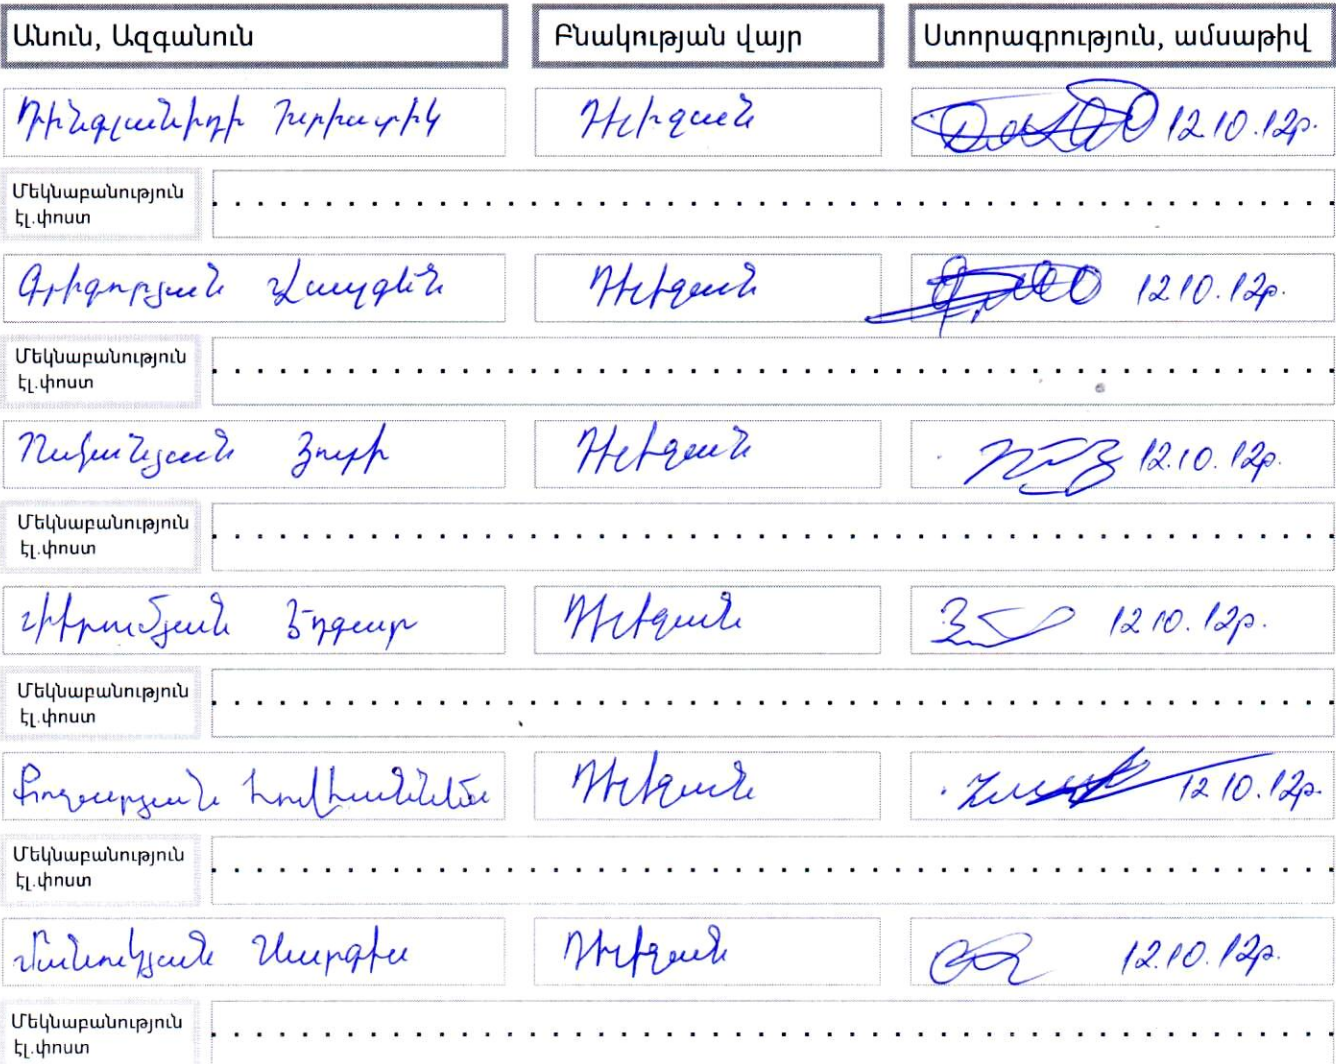 Անուն, Ազգանուն Բնակության վայր Ստորագրություն, ամսաթիվ
Դիլիջան 12.10.12թ.
Մեկնաբանություն
էլ.փոստ
Գրիգորյան Վազգեն Դիլիջան 12.10.12թ.
Մեկնաբանություն
էլ.փոստ
Ոսկանյան Յուրի Դիլիջան 12.10.12թ.
Մեկնաբանություն
էլ.փոստ
Էդգար Դիլիջան 12.10.12թ.
Մեկնաբանություն
էլ.փոստ
Քոչարյան Հովհաննես Դիլիջան 12.10.12թ.
Մեկնաբանություն
էլ.փոստ
Մանուկյան Սարգիս Դիլիջան 12.10.12թ.
Մեկնաբանություն
էլ.փոստ